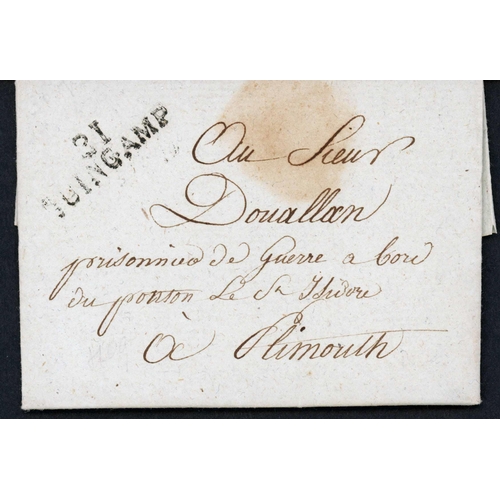 21
GUINGAMP
Au Sieur
Douallan
prisonnier de Guerre a bord
du ponton Le St Isidore
à Plimouth